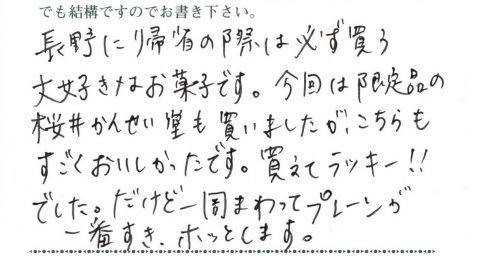 でも結構ですのでお書き下さい。
長野に帰省の際は必ず買う
大好きなお菓子です。今回は限定品の
桜井かんせい堂も買いましたが、こちらも
すごくおいしかったです。買えてラッキー!!
でした。だけど一周まわってプレーンが
一番すき、ホッとします。